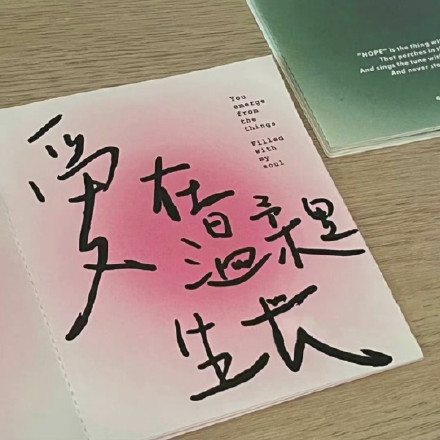 You
emerge
from
the
things
Filled
with
my
soul
爱
在
温柔里
生长
"HOPE" is the thing
That perches in
And sings the tune
And never